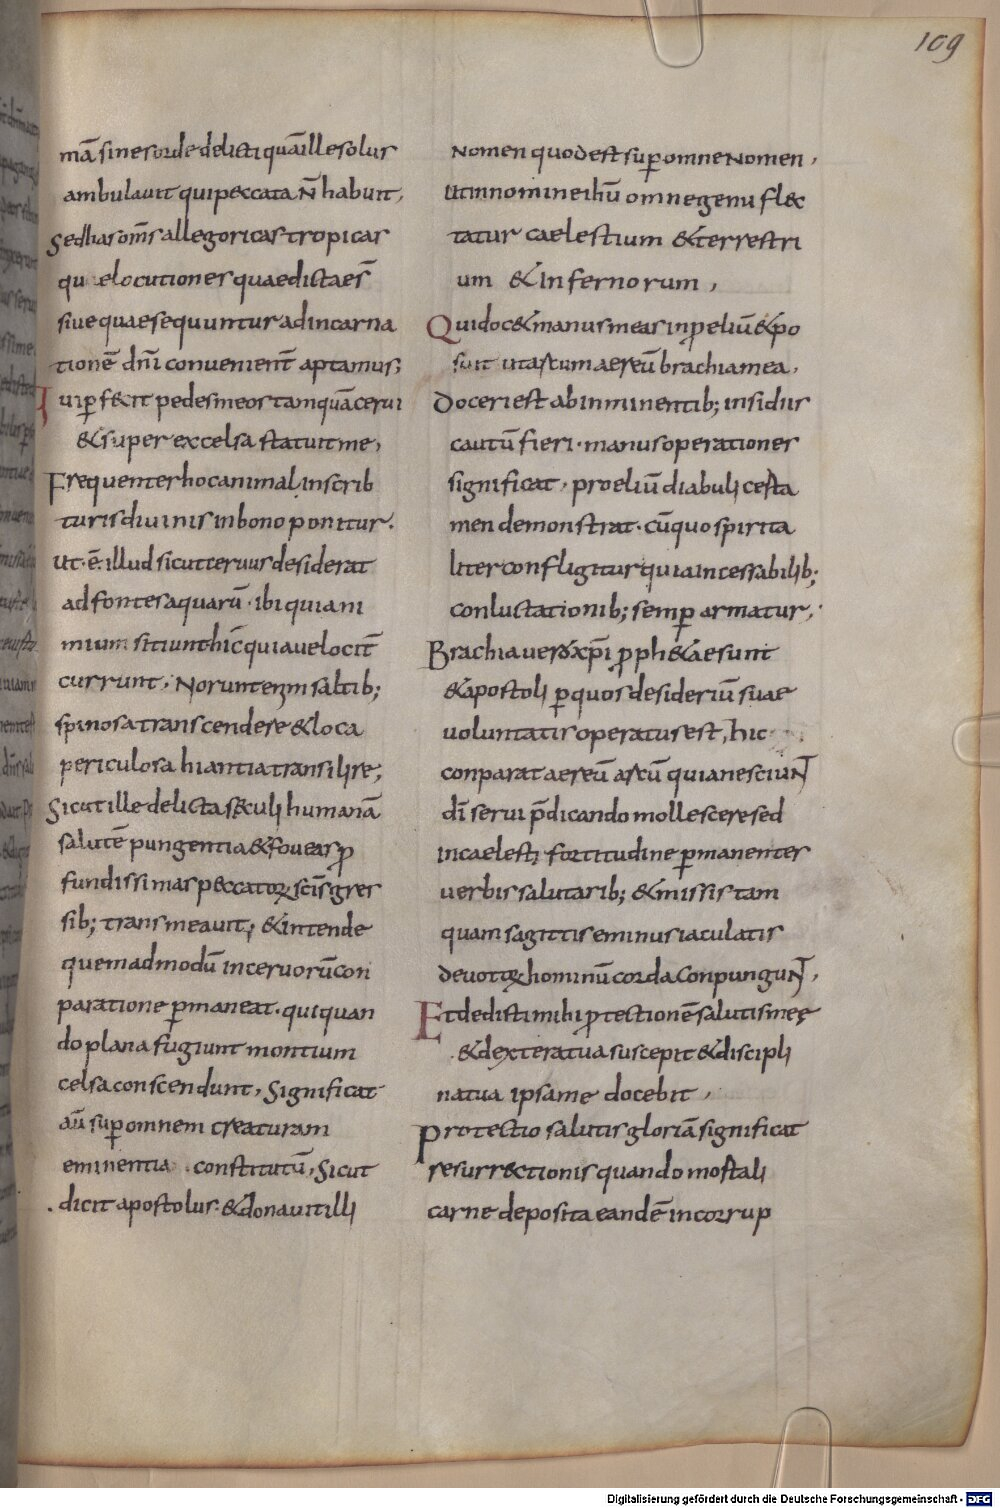 109
mā sine sorde delicti quā ille solus
ambulauit qui peccata n̄ habuit,
Sed has om̅s allegoricas tropicas
que locutiones quae dictae s̄
siue quae sequuntur ad incarna
tionē dn̄i conuenient̄ aptamus;
Qui ꝑfecit pedes meos tamquā cerui
& super excelsa statuit me,
Frequenter hoc animal in scrib
turis diuinis in bono ponitur.
ut · ē · illud sicut ceruus desiderat
ad fontes aquarū · ibi quia ni
mium sitiunt hic̄ quia uelocit̄
currunt, Norunt enim saltib;
spinosa transcendere & loca
periculosa hiantia transilire;
Sicut ille delicta sęculi humanā
salutē pungentia & foueas ꝓ
fundissimas peccatoꝝ sc̄is gres
sib; transmeauit; & intende
quemadmodū in ceruorū con
paratione ꝑmaneat · qui quan
do plana fugiunt montium
celsa conscendunt, Significat
aū suꝑ omnem creaturam
eminentia constitutū, Sicut
dicit apostolus · & donauit illi
Nomen quod est suꝑ omne Nomen,
ut in nomine ihū omne genu flec
tatur caelestium & terrestri
um & Infernorum,
Qui docet manus meas in p̄eliū & po
suit ut arcum aereū brachia mea,
Doceri est ab inminentib; insidiis
cautū fieri · manus operationes
significat, proeliū diabuli certa
men demonstrat · cū quo spirita
liter confligitur quia incessabilib;
conluctationib; semꝑ armatur,
Brachia uero xp̄i ꝓphetae sunt
& apostoli ꝑ quos desideriū suae
uoluntatis operatus est, hic
conparat aereū arcū quia nesciunt
dī serui p̄dicando mollescere sed
in caelesti fortitudine ꝑmanentes
uerbis salutarib; & missis tam
quam sagittis eminus iaculatis
deuotoꝝ hominū corda conpungunt,
Et dedisti mihi ꝓtectionē salutis meę
& dextera tua suscepit & discipli
na tua ipsa me docebit,
Protectio salutis gloriā significat
resurrectionis quando mortali
carne deposita eandē incorrup
Digitalisierung gefördert durch die Deutsche Forschungsgemeinschaft - DFG